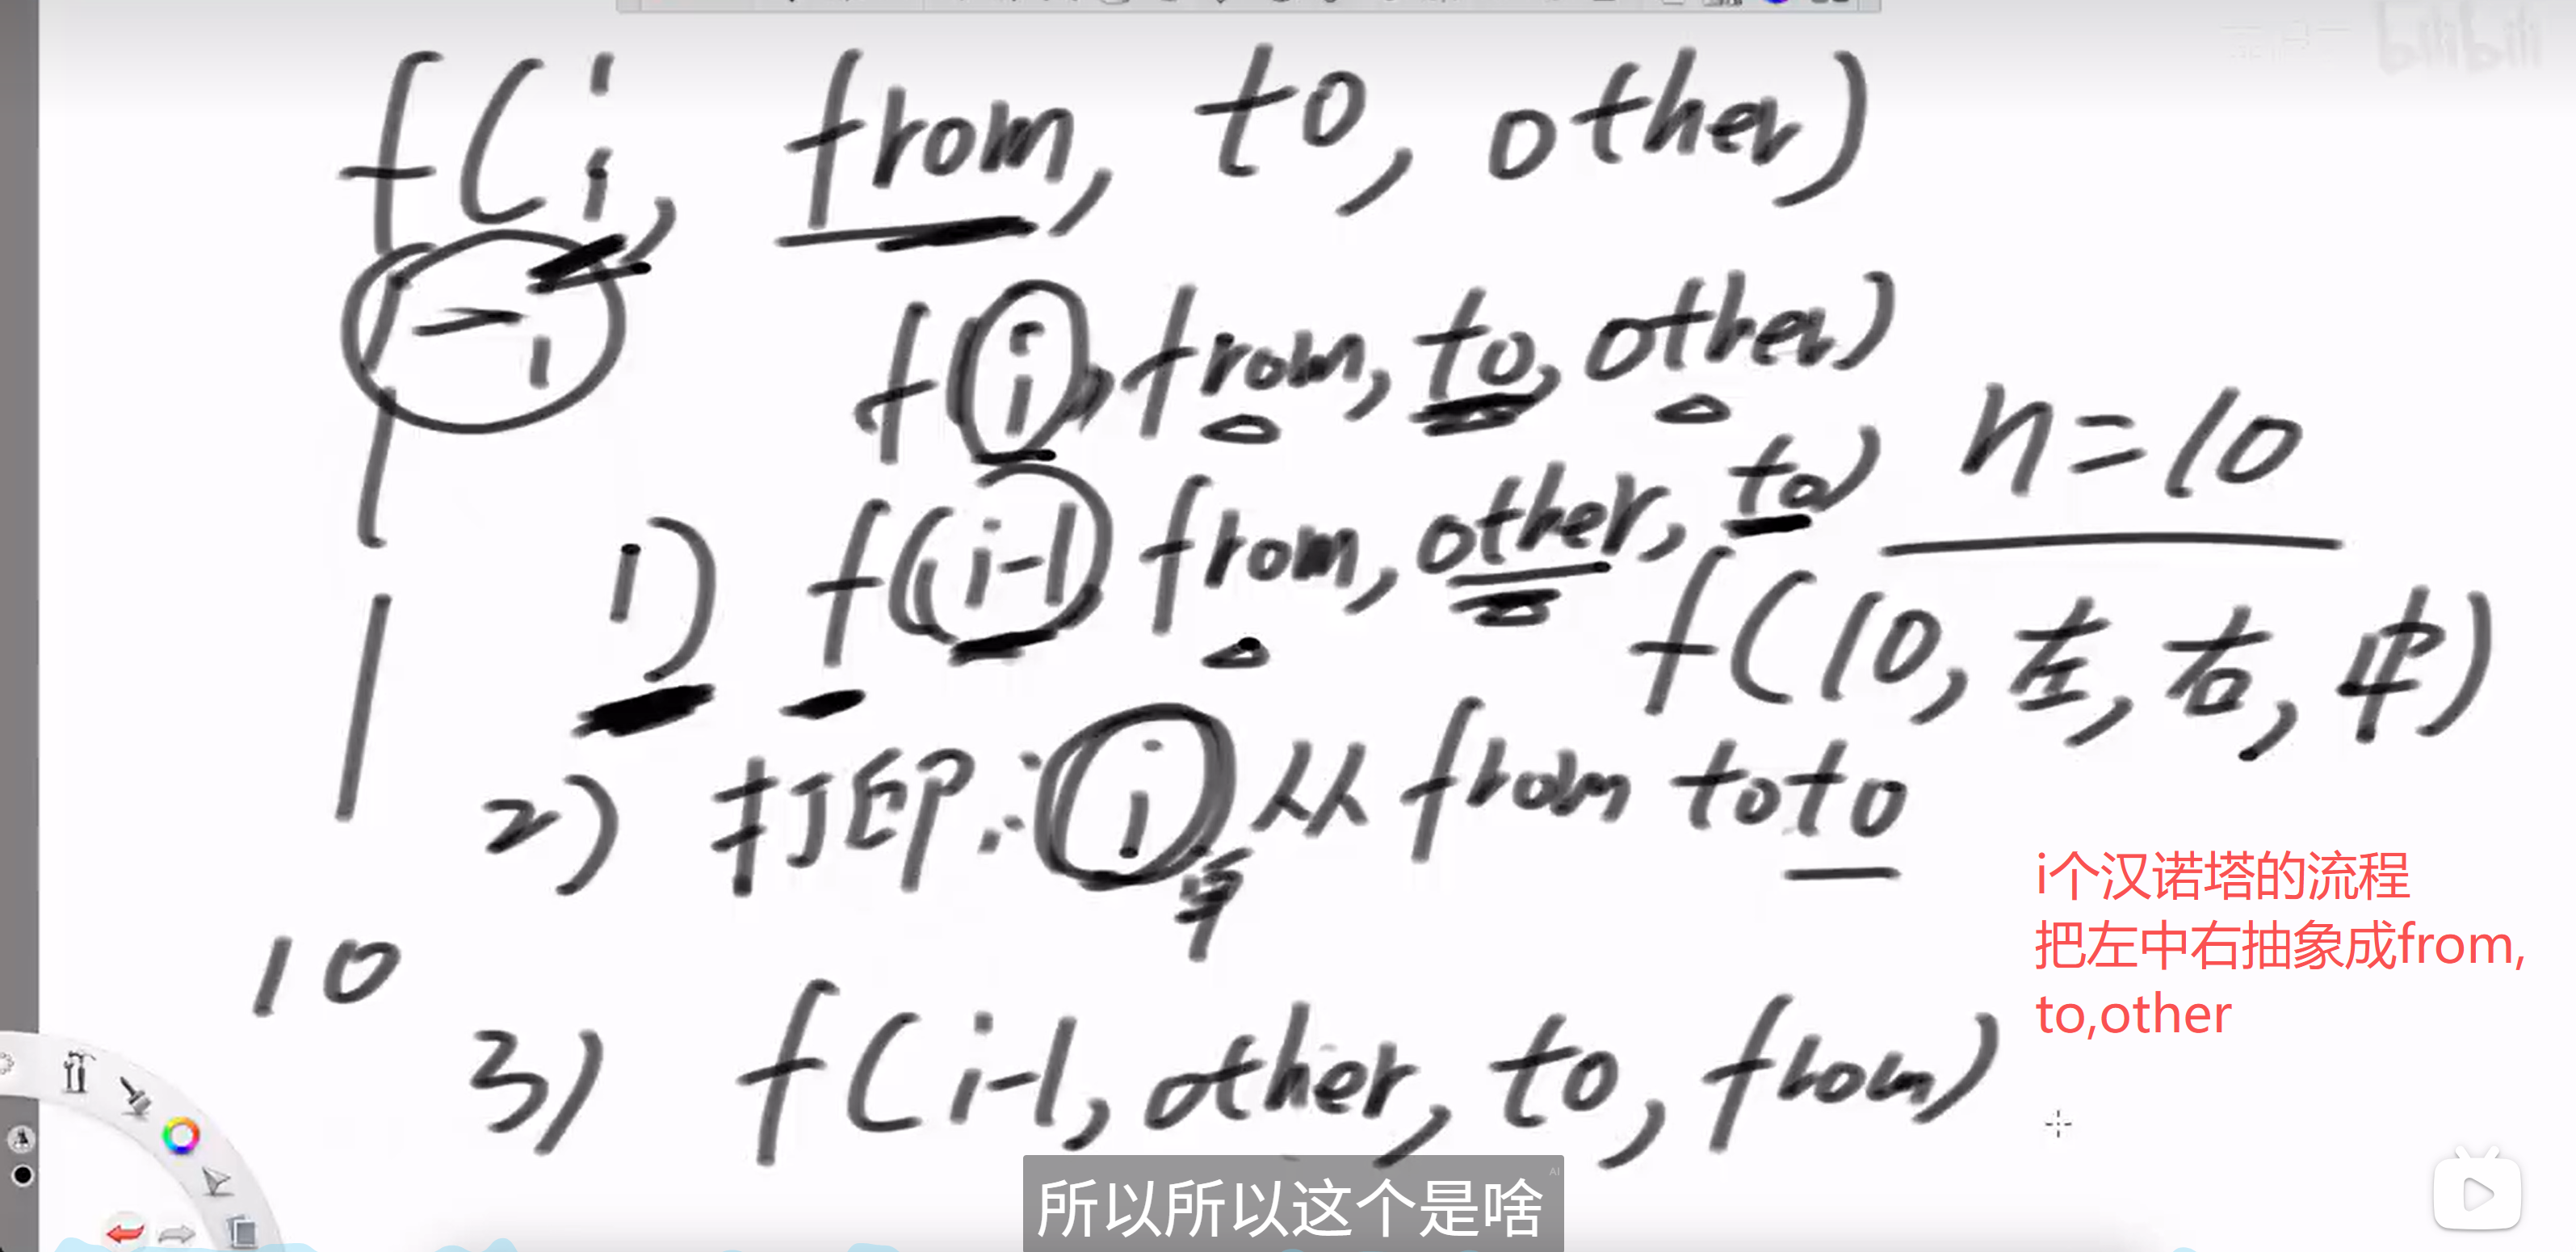 bilibili
f(i, from, to, other)
1~i
f(i, from, to, other)
n=10
1) f(i-1 from, other, to)
f(10, 左, 右, 中)
2) 打印: i 从 from to to
单
i个汉诺塔的流程
把左中右抽象成from,
to,other
10
3) f(i-1, other, to, from)
所以所以这个是啥
AI